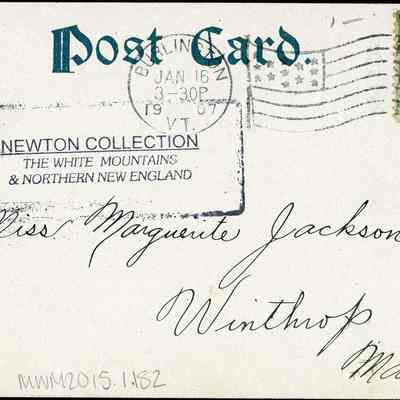 Post Card.
BURLINGTON
JAN 16
3-30P
1907
VT.
NEWTON COLLECTION
THE WHITE MOUNTAINS
& NORTHERN NEW ENGLAND
Miss Marguerite Jackson
Winthrop
MWM2015.1.182